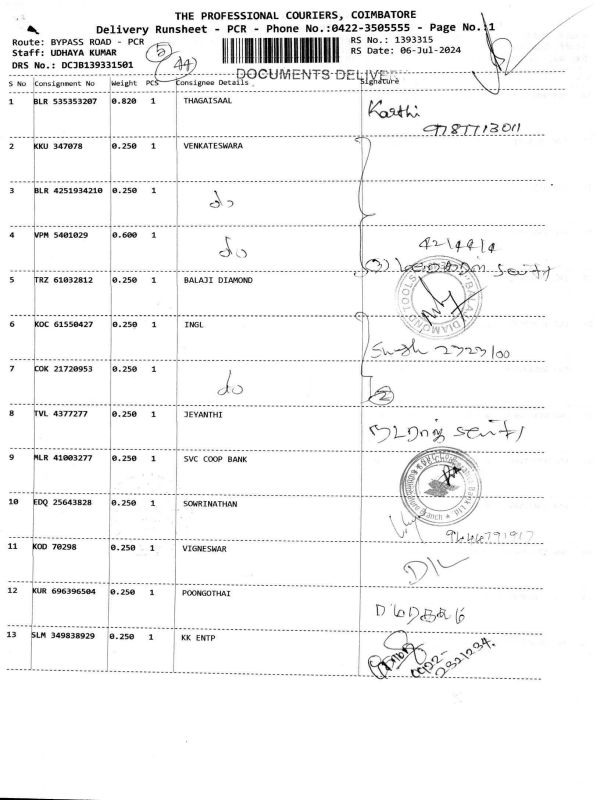 THE PROFESSIONAL COURIERS, COIMBATORE
Delivery Runsheet - PCR - Phone No.:0422-3505555 - Page No.:1
Route: BYPASS ROAD - PCR
RS No.: 1393315
Staff: UDHAYA KUMAR
RS Date: 06-Jul-2024
DRS No.: DCJB139331501
5
44
DOCUMENTS DELIVE
S No Consignment No Weight PCS Consignee Details Signature
1 BLR 535353207 0.820 1 THAGAISAAL Karthi
9787713011
2 KKU 347078 0.250 1 VENKATESWARA
3 BLR 4251934210 0.250 1 do
4 VPM 5401029 0.600 1 do 42/44/4
(3)
5 TRZ 61032812 0.250 1 BALAJI DIAMOND
DIAMOND TOOLS
6 KOC 61550427 0.250 1 INGL 2323/00
7 COK 21720953 0.250 1 do 2
8 TVL 4377277 0.250 1 JEYANTHI
9 MLR 41003277 0.250 1 SVC COOP BANK
Bank Ltd
10 EDQ 25643828 0.250 1 SOWRINATHAN
11 KOD 70298 0.250 1 VIGNESWAR D/L
12 KUR 696396504 0.250 1 POONGOTHAI
13 SLM 349838929 0.250 1 KK ENTP